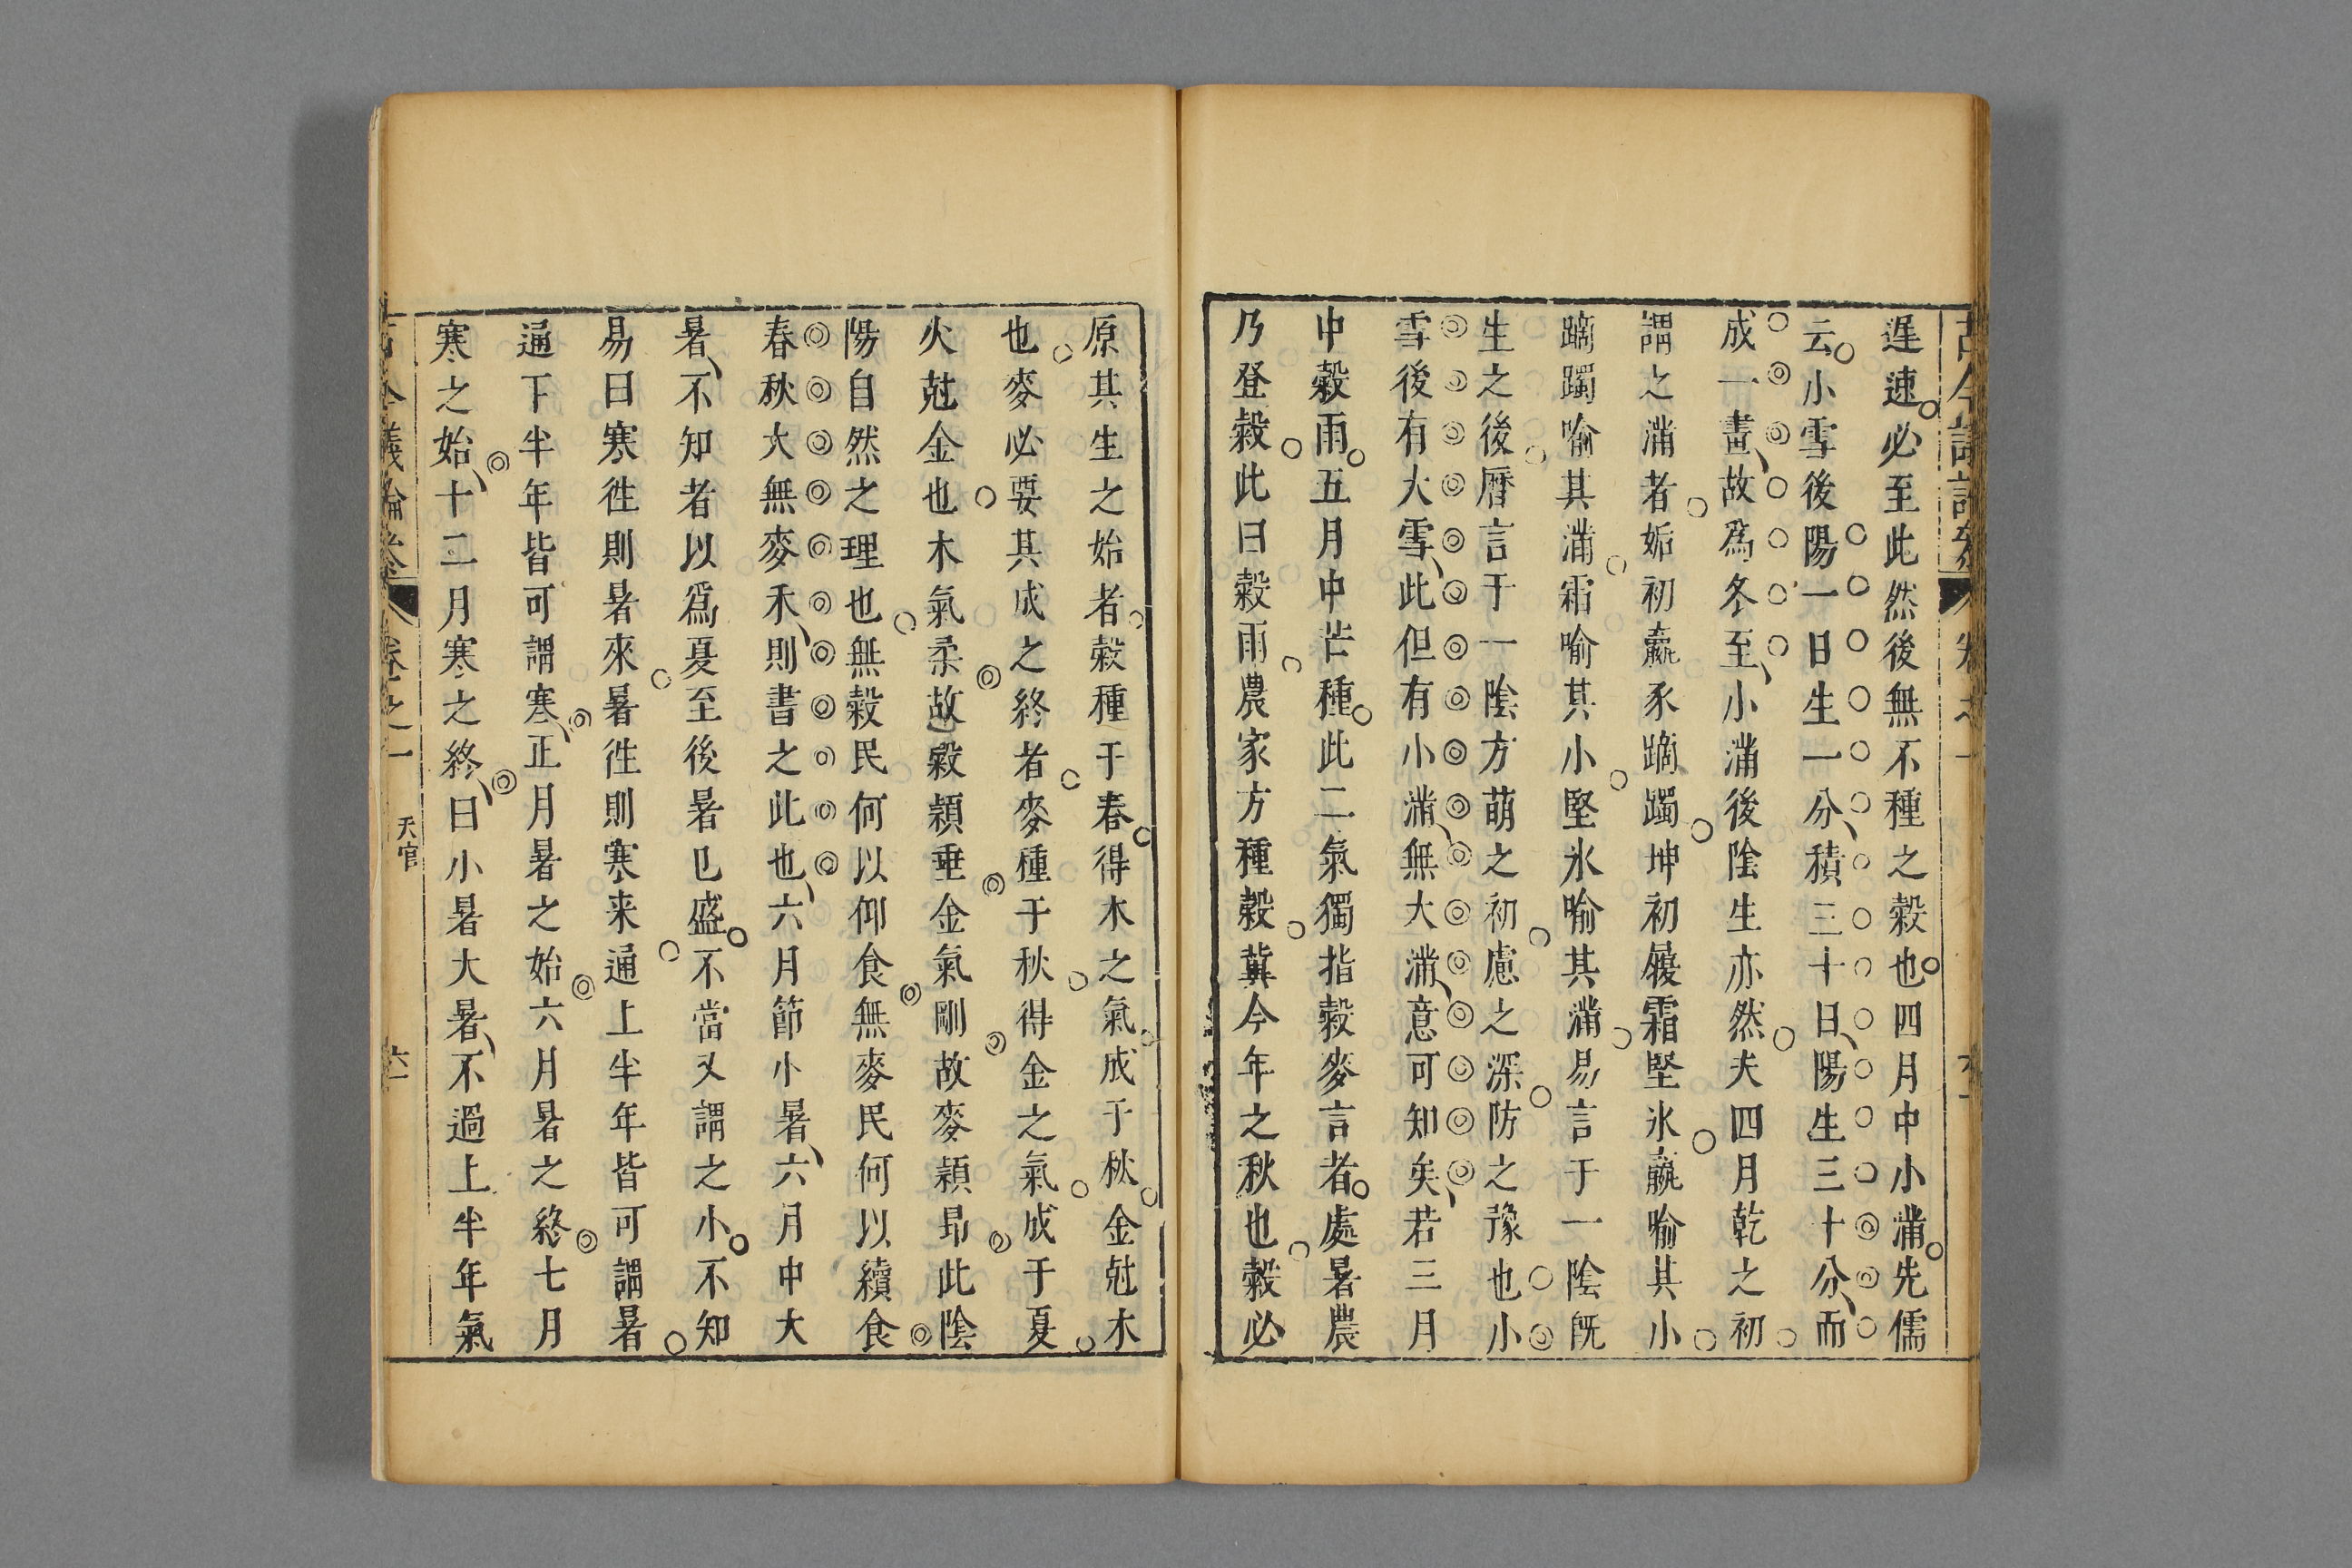 遲速必至此然後無不種之穀也四月中小滿先儒
云小雪後陽一日生一分積三十日陽生三十分而
成一畫故爲冬至小滿後陰生亦然夫四月乾之初
謂之滿者姤初羸豕蹢躅坤初履霜堅氷羸喻其小
蹢躅喻其滿霜喻其小堅氷喻其滿易言于一陰旣
生之後曆言于一陰方萌之初慮之深防之豫也小
雪後有大雪此但有小滿無大滿意可知矣若三月
中穀雨五月中芒種此二氣獨指穀麥言者處暑農
乃登穀此曰穀雨農家方種穀冀今年之秋也穀必
原其生之始者穀種于春得木之氣成于秋金尅木
也麥必要其成之終者麥種于秋得金之氣成于夏
火尅金也木氣柔故穀穎垂金氣剛故麥穎昻此陰
陽自然之理也無穀民何以仰食無麥民何以續食
春秋大無麥禾則書之此也六月節小暑六月中大
暑不知者以爲夏至後暑已盛不當又謂之小不知
易曰寒徃則暑來暑徃則寒来通上半年皆可謂暑
通下半年皆可謂寒正月暑之始六月暑之終七月
寒之始十二月寒之終曰小暑大暑不過上半年氣
卷之一
天官
六